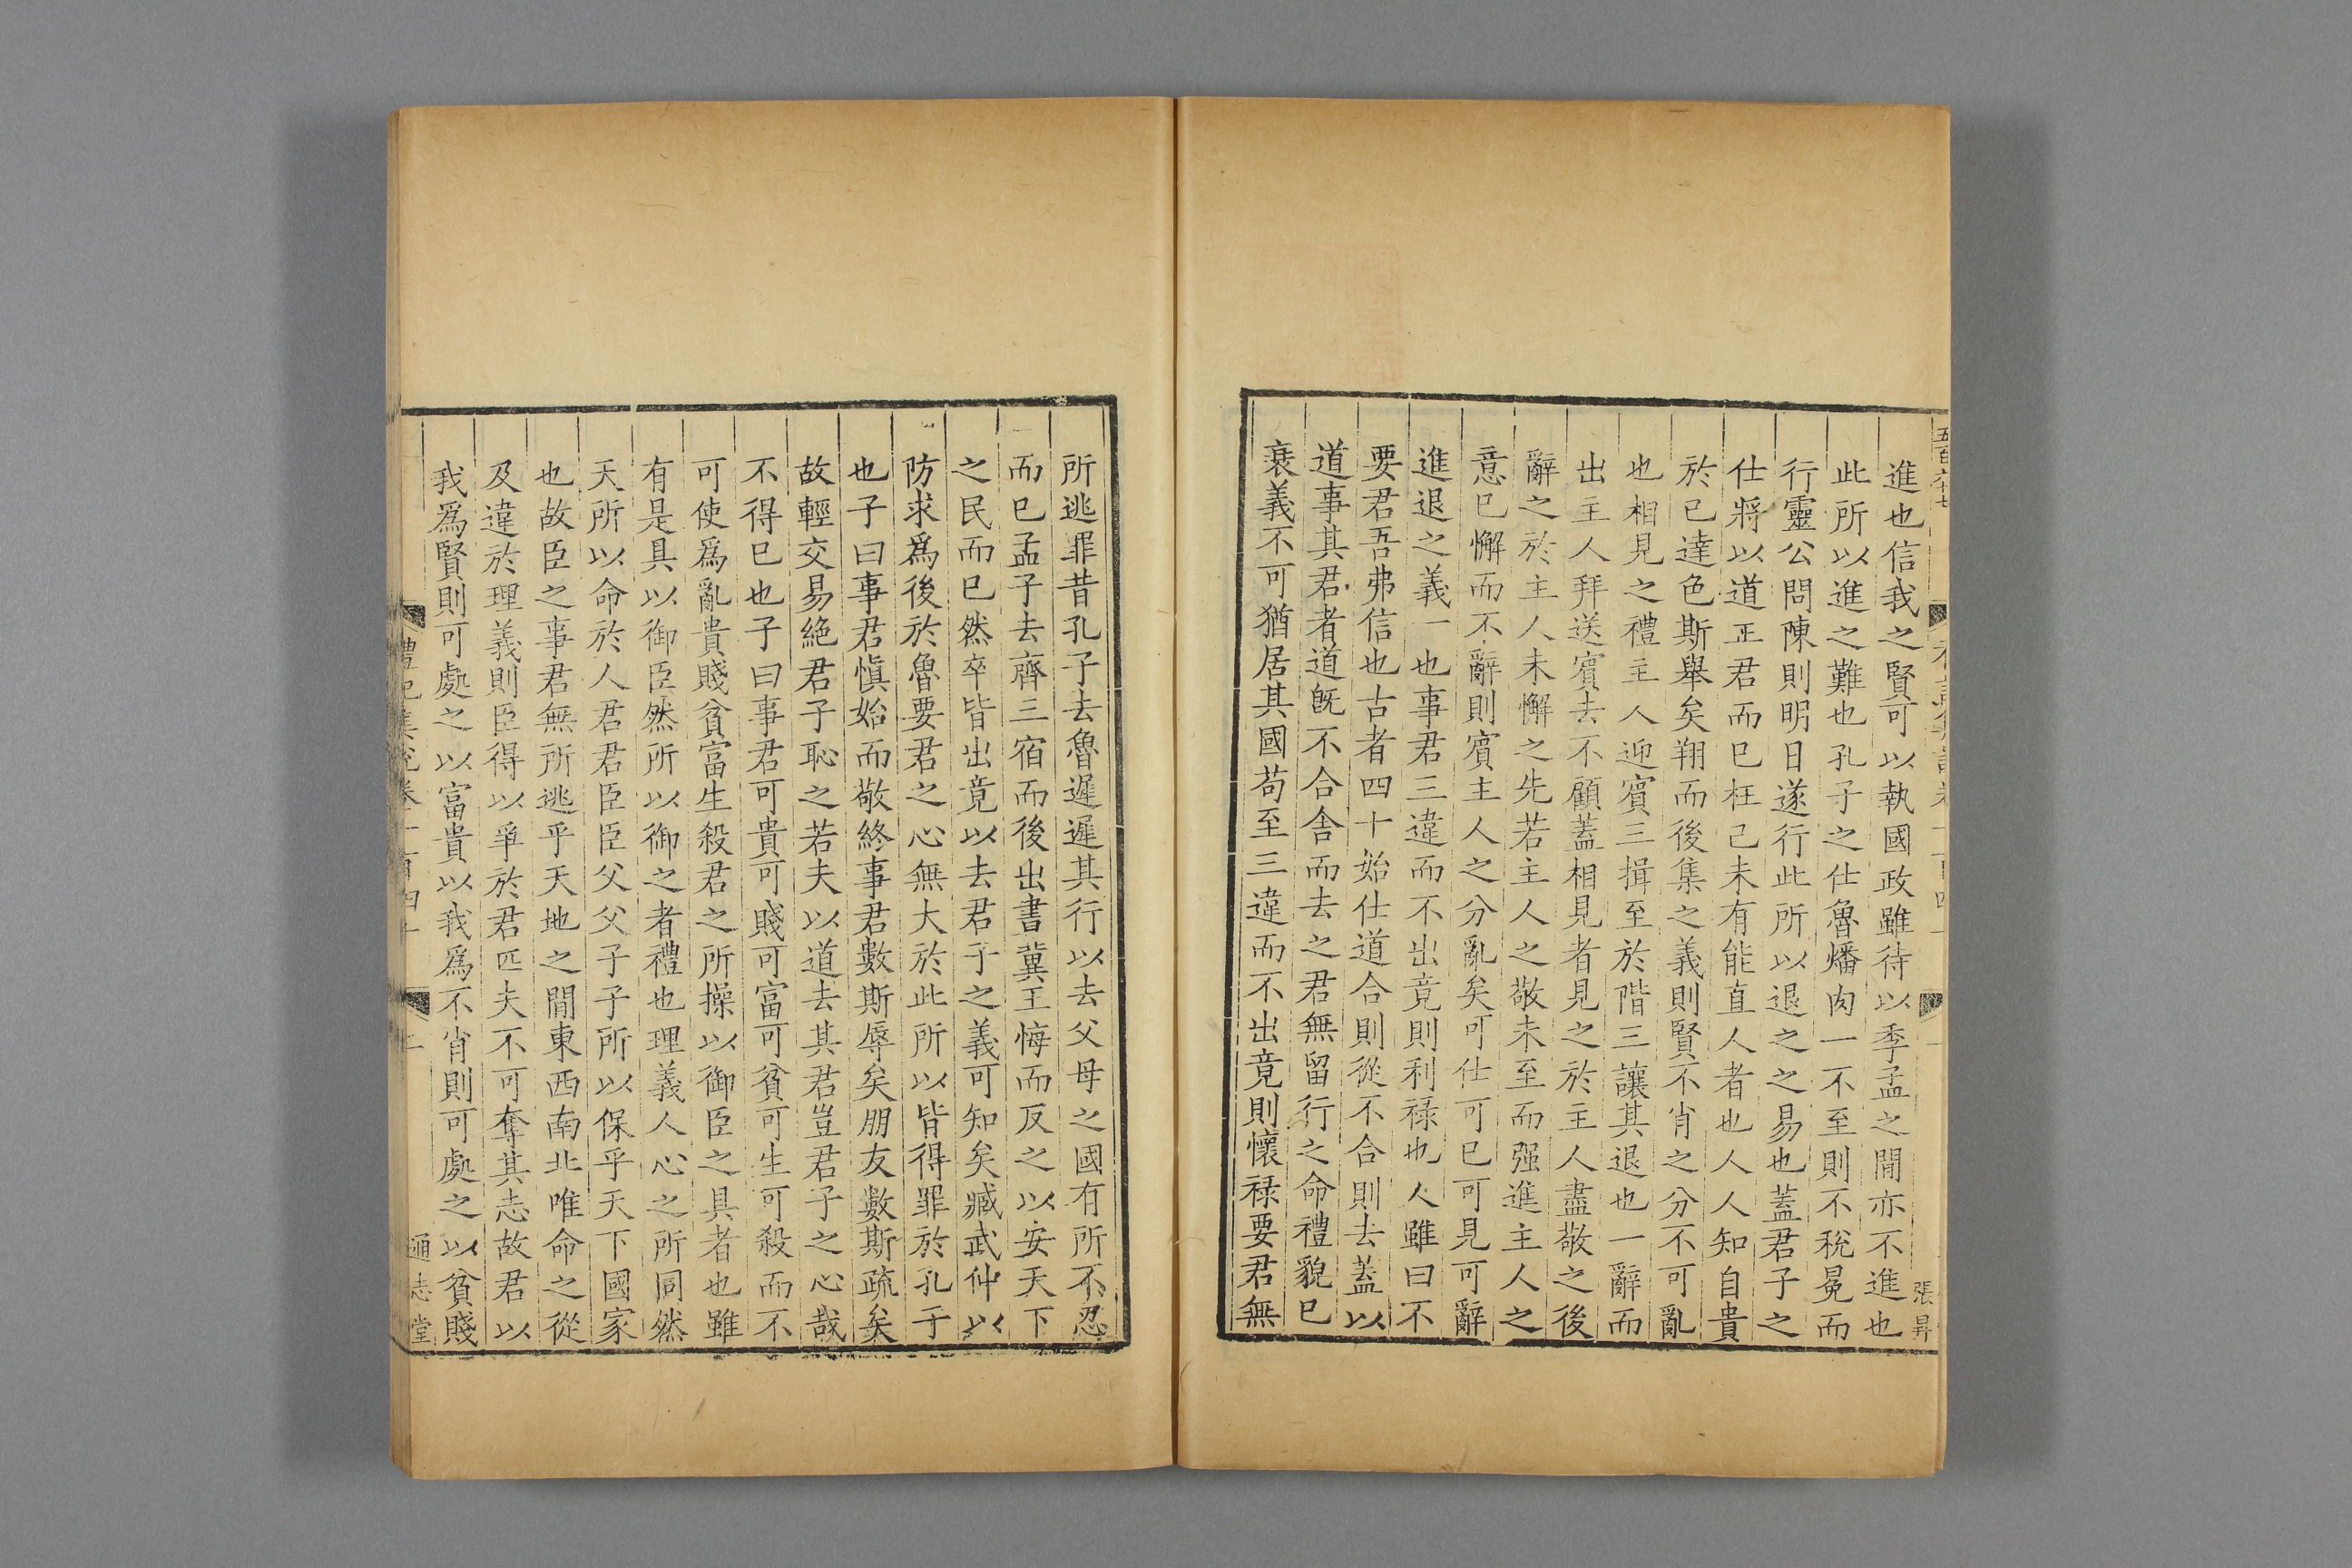 進也信我之賢可以執國政雖待以季孟之間亦不進也
此所以進之難也孔子之仕魯燔肉一不至則不稅冕而
行靈公問陳則明日遂行此所以退之之易也蓋君子之
仕將以道正君而已枉己未有能直人者也人人知自貴
於已達色斯舉矣翔而後集之義則賢不肖之分不可亂
也相見之禮主人迎賓三揖至於階三讓其退也一辭而
出主人拜送賓去不顧蓋相見者見之於主人盡敬之後
辭之於主人未懈之先若主人之敬未至而强進主人之
意已懈而不辭則賓主人之分亂矣可仕可已可見可辭
進退之義一也事君三違而不出竟則利祿也人雖曰不
要君吾弗信也古者四十始仕道合則從不合則去蓋以
道事其君者道旣不合舍而去之君無留行之命禮貌已
衰義不可猶居其國苟至三違而不出竟則懷祿要君無
所逃罪昔孔子去魯遲遲其行以去父母之國有所不忍
而已孟子去齊三宿而後出書冀王悔而反之以安天下
之民而已然卒皆出竟以去君子之義可知矣臧武仲以
防求爲後於魯要君之心無大於此所以皆得罪於孔子
也子曰事君愼始而敬終事君數斯辱矣朋友數斯疏矣
故輕交易絶君子恥之若夫以道去其君豈君子之心哉
不得已也子曰事君可貴可賤可富可貧可生可殺而不
可使爲亂貴賤貧富生殺君之所操以御臣之具者也雖
有是具以御臣然所以御之者禮也理義人心之所同然
天所以命於人君君臣臣父父子子所以保乎天下國家
也故臣之事君無所逃乎天地之間東西南北唯命之從
及違於理義則臣得以爭於君匹夫不可奪其志故君以
我爲賢則可處之以富貴以我爲不肖則可處之以貧賤
禮記集說卷一百四十
通志堂
張昇